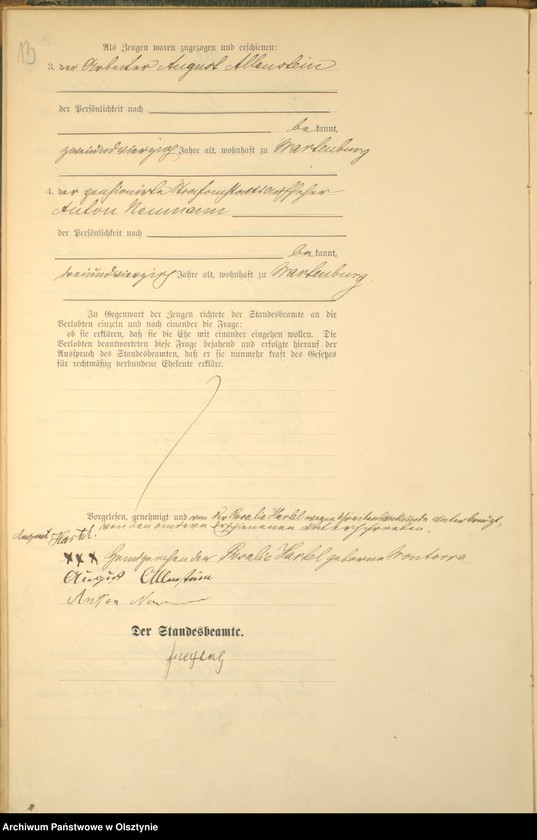 13
Als Zeugen waren zugezogen und erschienen:
3. der Arbeiter August Allenstein
der Persönlichkeit nach
bekannt,
zweiundvierzig Jahre alt, wohnhaft zu Wartenburg
4. der pensionirte Strafanstaltsaufseher
Anton Neumann
der Persönlichkeit nach
bekannt,
dreiundvierzig Jahre alt, wohnhaft zu Wartenburg.
In Gegenwart der Zeugen richtete der Standesbeamte an die
Verlobten einzeln und nach einander die Frage:
ob sie erklären, daß sie die Ehe mit einander eingehen wollen. Die
Verlobten beantworteten diese Frage bejahend und erfolgte hierauf der
Ausspruch des Standesbeamten, daß er sie nunmehr kraft des Gesetzes
für rechtmäßig verbundene Eheleute erkläre.
Vorgelesen, genehmigt und von der Rosalie Hartel wegen Schreibensunkunde unterkreuzt,
von den anderen Erschienenen unterschrieben.
August Hartel.
XXX Handzeichen der Rosalie Hartel geborne
August Allenstein
Anton
Der Standesbeamte.
Archiwum Państwowe w Olsztynie